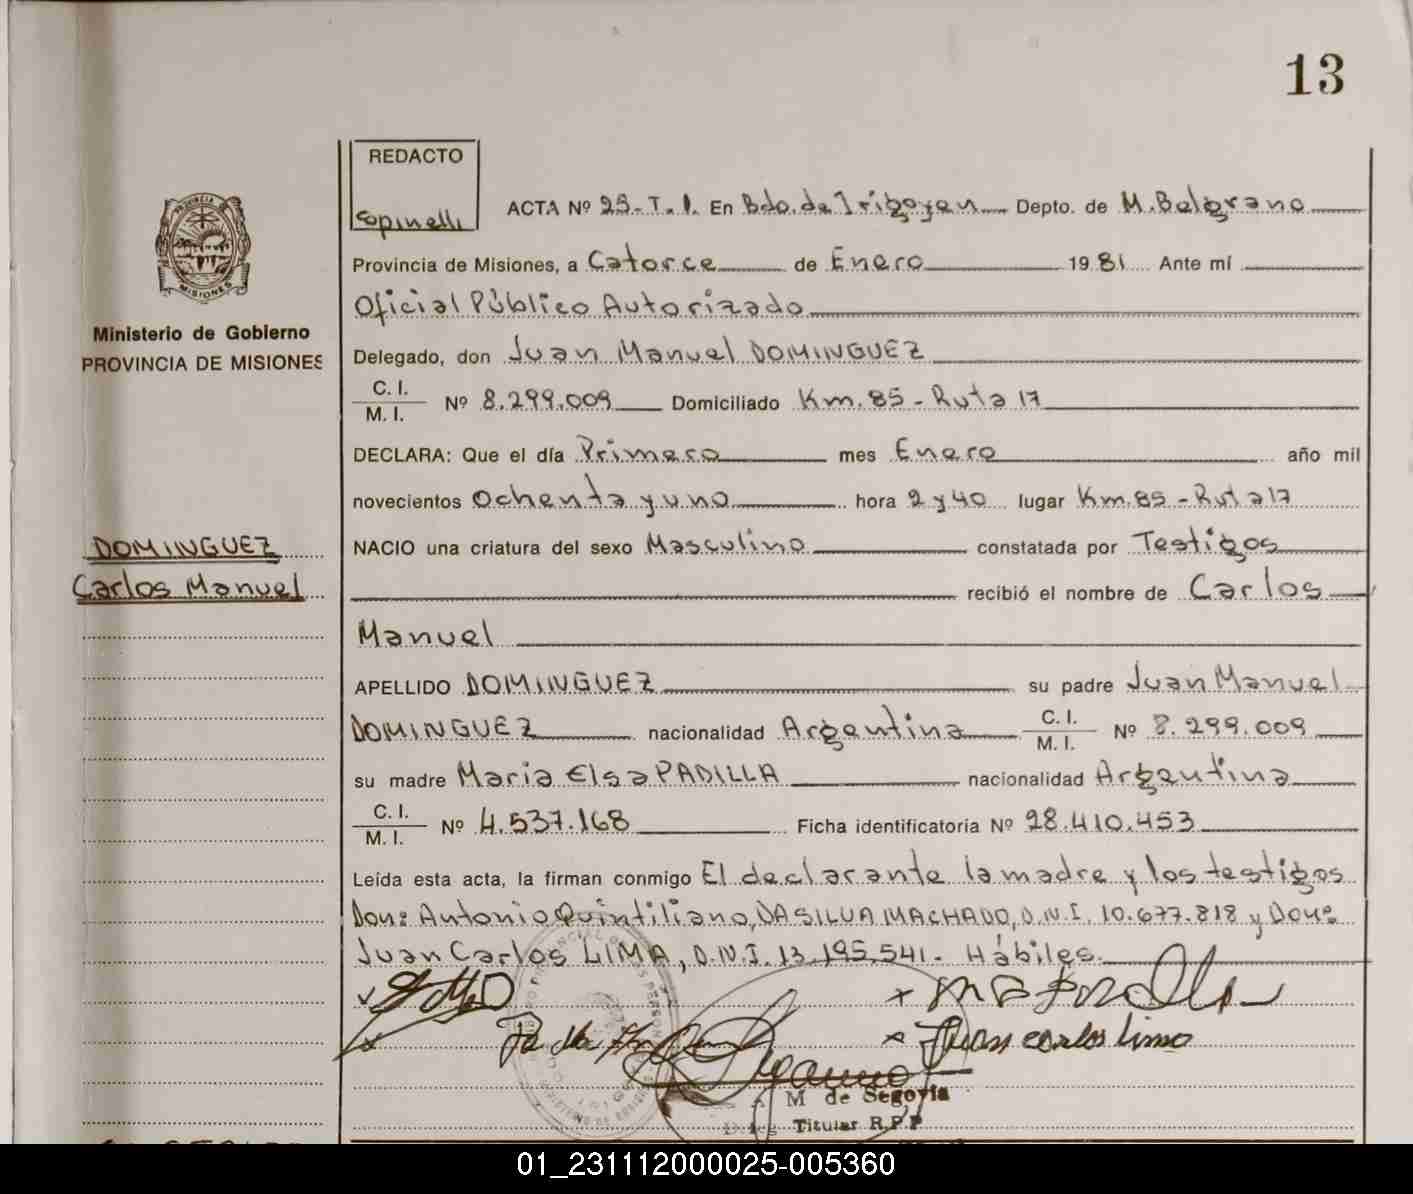 13
REDACTO
Espinelli
PROVINCIA DE
MISIONES
ACTA Nº 25-T.1. En Bdo. de Irigoyen Depto. de M. Belgrano
Provincia de Misiones, a Catorce de Enero 1981 Ante mí
Oficial Público Autorizado
Ministerio de Gobierno
PROVINCIA DE MISIONES
Delegado, don Juan Manuel DOMINGUEZ
C. I.
M. I. Nº 8.299.009 Domiciliado Km. 85 - Ruta 17
DECLARA: Que el día Primero mes Enero año mil
novecientos Ochenta y uno hora 2 y 40 lugar Km. 85 - Ruta 17
DOMINGUEZ
Carlos Manuel
NACIO una criatura del sexo Masculino constatada por Testigos
recibió el nombre de Carlos
Manuel
APELLIDO DOMINGUEZ su padre Juan Manuel
DOMINGUEZ nacionalidad Argentina C. I. M. I. Nº 8.299.009
su madre Maria Elsa PADILLA nacionalidad Argentina
C. I.
M. I. Nº 4.537.168 Ficha identificatoria Nº 28.410.453
Leída esta acta, la firman conmigo El declarante la madre y los testigos
Don: Antonio Quintiliano, DASILVA MACHADO, D.N.I. 10.677.818 y Don:
Juan Carlos LIMA, D.N.I. 13.195.541 - Hábiles.
Juan carlos lima
M de Segovia
Titular R.P.P
01_231112000025-005360